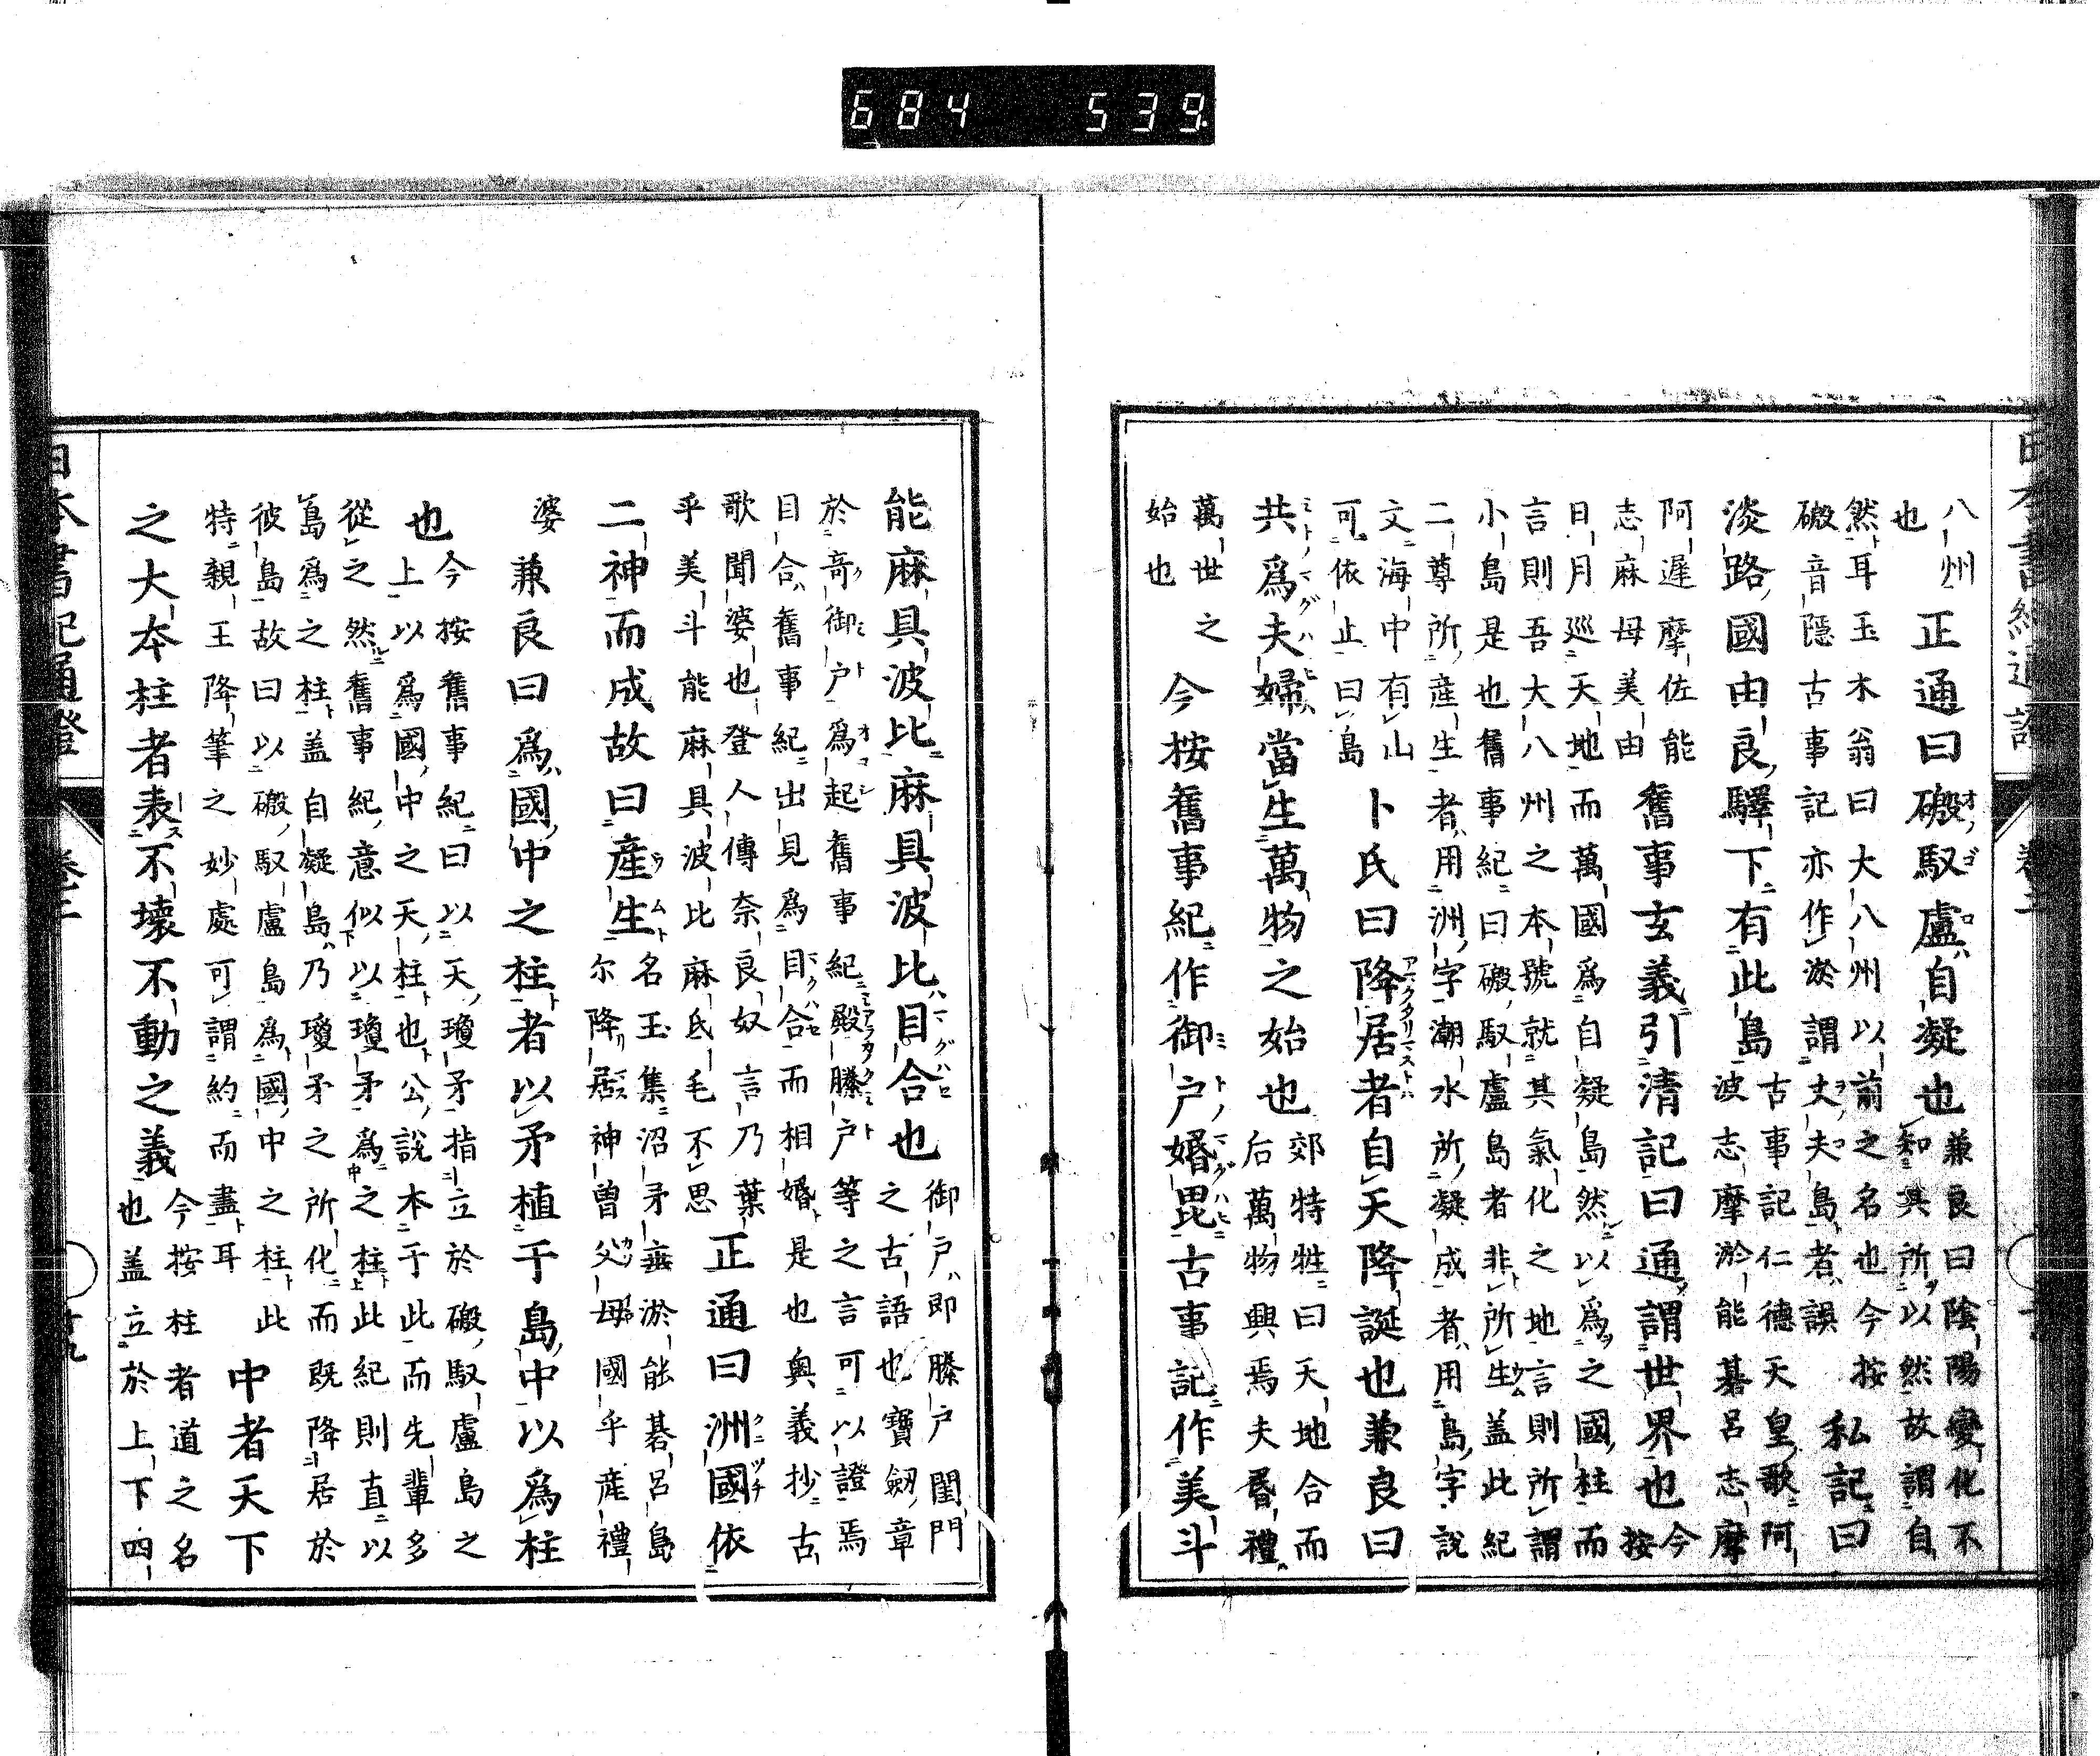 684 539
八州
也
正通曰磤馭盧自凝也
兼良曰陰陽變化不
知其所以然故謂自
然耳玉木翁曰大八州以前之名也今按
磤音隱古事記亦作淤謂丈夫島者誤
私記曰
淡路國由良驛下有此島
古事記仁德天皇歌阿
波志摩淤能碁呂志摩
阿遲摩佐能
志麻母美由
舊事玄義引清記曰通謂世界也
今
按
日月巡天地而萬國爲自凝島然以爲之國柱而
言則吾大八州之本號就其氣化之地言則所謂
小島是也舊事紀曰磤馭盧島者非所生蓋此紀
二尊所產生者用洲字潮水所凝成者用島字說
文海中有山
可依止曰島
卜氏曰降居者自天降誕也兼良曰
共爲夫婦當生萬物之始也
郊特牲曰天地合而
后萬物興焉夫昏禮
萬世之
始也
今按舊事紀作御戶婚毘古事記作美斗
能麻具波比麻具波比目合也
御戶即縢戶閨門
之古語也寶劔章
於奇御戶爲起舊事紀殿縢戶等之言可以證焉
目合舊事紀出見爲目合而相婚是也奧義抄古
歌聞婆也登人傳奈良奴言乃葉
乎美斗能麻具波比麻氐毛不思
正通曰洲國依
二神而成故曰產生
名玉集沼矛垂淤能碁呂島
尔降居神曾父母國乎産禮
婆
兼良曰爲國中之柱者以矛植于島中以爲柱
也
今按舊事紀曰以天瓊矛指立於磤馭盧島之
上以爲國中之天柱也公說本于此而先輩多
從之然舊事紀意似以瓊矛爲之柱此紀則直以
島爲之柱蓋自凝島乃瓊矛之所化而既降居於
彼島故曰以磤馭盧島爲國中之柱此
特親王降筆之妙處可謂約而盡耳
中者天下
之大本柱者表不壞不動之義
今按柱者道之名
也蓋立於上下四
日本書紀通證
卷三
廿九